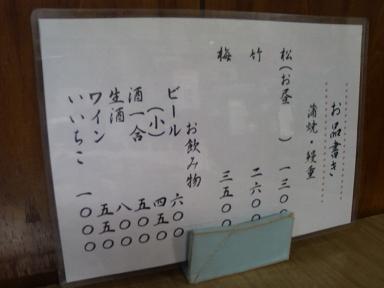 お品書き
蒲焼・重
松(お昼 ) 一三〇〇
竹 二六〇〇
梅 三五〇〇
お飲み物
ビール 六〇〇
(小) 四五〇
酒一合 五〇〇
生酒 八〇〇
ワイン 五五〇
いいちこ 一〇〇〇